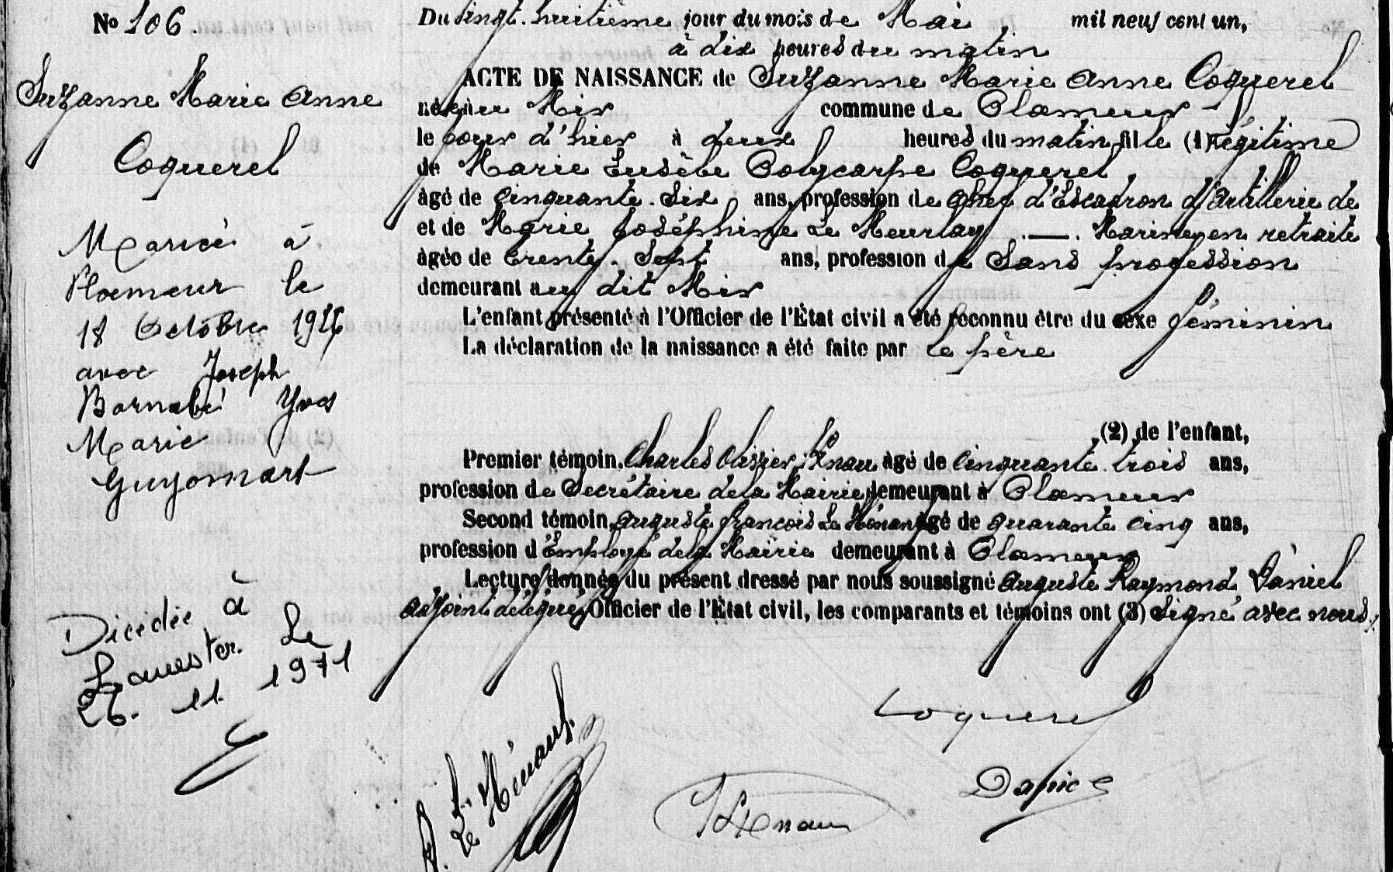 Nº 106.
Suzanne Marie Anne
Coquerel
Mariée à
Ploemeur le
18 Octobre
avec Joseph
Barnabé Yves
Marie
Guyomart
Dicédée à
Lanester. Le
26. 11. 1971
Du vingt-huitième jour du mois de Mai mil neuf cent un,
à dix heures du matin
ACTE DE NAISSANCE de Suzanne Marie Anne Coquerel
née au commune de Ploemeur
le jour d'hier à deux heures du matin, fille (1) légitime
de Marie Eusèbe Polycarpe Coquerel
âgé de cinquante-six ans, profession de Chef d'Escadron d'Artillerie de
et de Marie Joséphine Le Meurlay —. Marine, en retraite
âgée de trente-Sept ans, profession de Sans profession
demeurant au dit
L'enfant présenté à l'Officier de l'État civil a été reconnu être du sexe féminin
La déclaration de la naissance a été faite par le père
(2) de l'enfant,
Premier témoin, Charles Olivier âgé de cinquante-trois ans,
profession de Secrétaire de la Mairie demeurant à Ploemeur
Second témoin, Auguste François Le Hénanf âgé de quarante cinq ans,
profession d'Employé de la Mairie demeurant à Ploemeur
Lecture donnée du présent dressé par nous soussigné Auguste Raymond Daniel
adjoint délégué, Officier de l'État civil, les comparants et témoins ont (3) signé avec nous.
Coquerel
Le Hénanf
Daniel